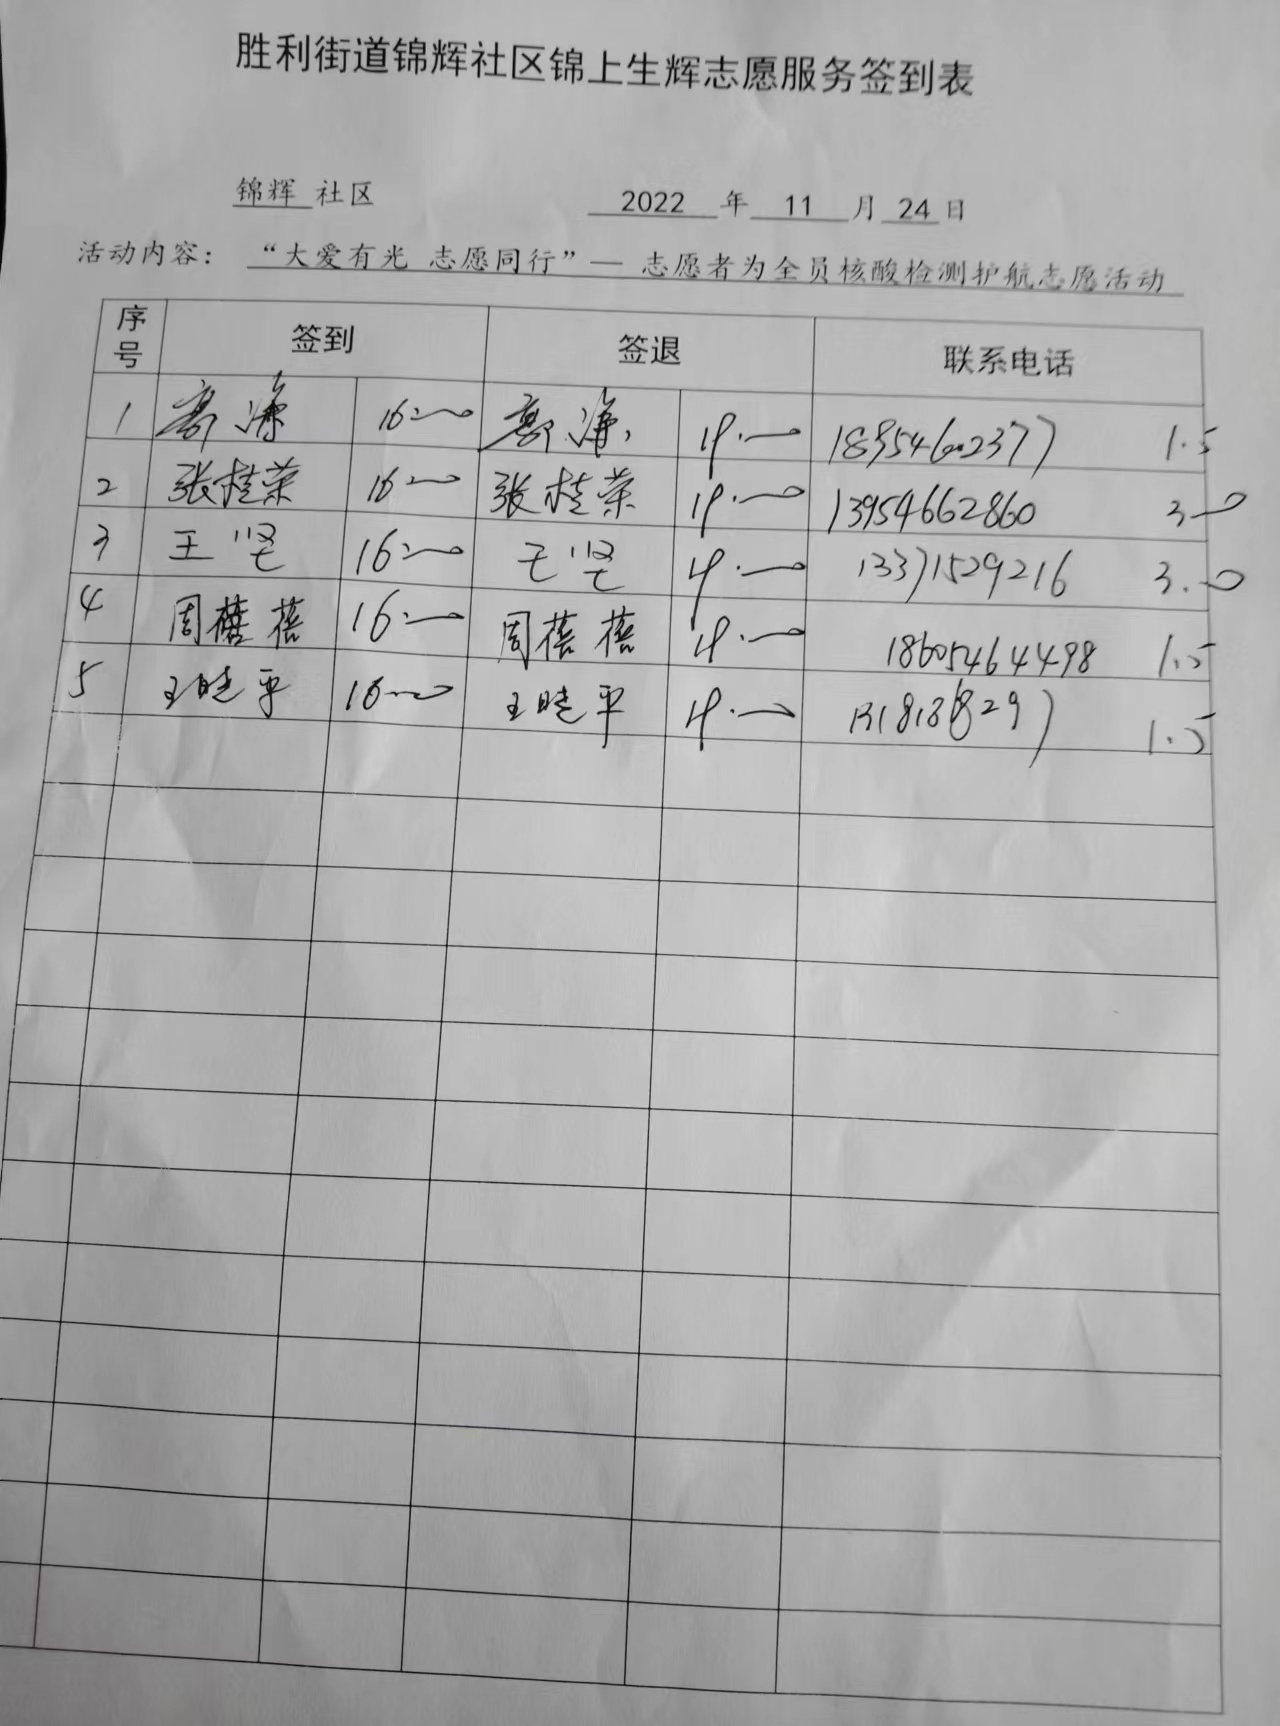 胜利街道锦辉社区锦上生辉志愿服务签到表
锦辉 社区 2022 年 11 月 24 日
活动内容： “大爱有光 志愿同行”— 志愿者为全员核酸检测护航志愿活动
序号 签到 签退 联系电话
1 16:00 19:00 18954602377 1.5
2 张桂荣 16:00 张桂荣 19:00 13954662860 3.0
3 王坚 16:00 王坚 19:00 13371529216 3.0
4 周蓓蓓 16:00 周蓓蓓 19:00 18605464498 1.5
5 王晓平 16:00 王晓平 19:00 1.5